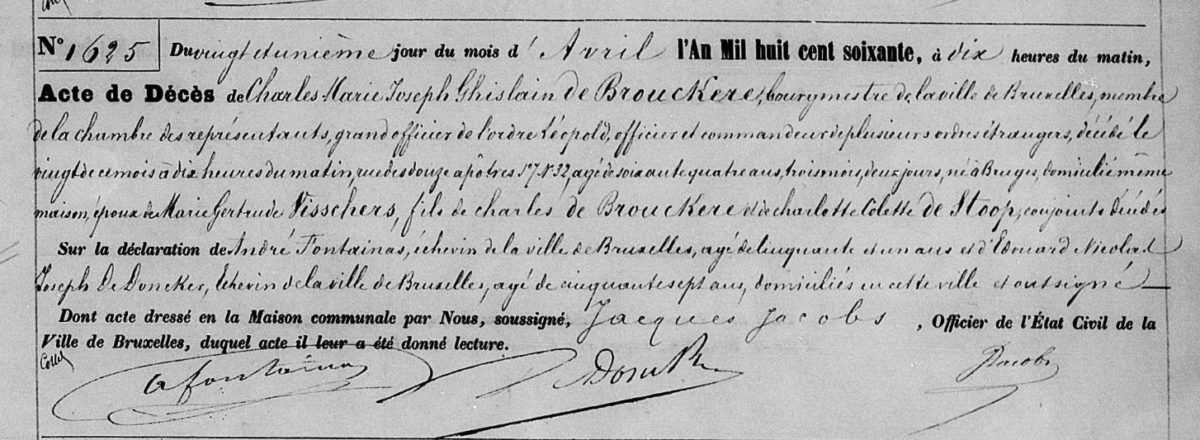 N° 1625 Du vingt et unième jour du mois d'Avril l'An Mil huit cent soixante, à dix heures du matin,
Acte de Décès de Charles Marie Joseph Ghislain de Brouckere, bourgmestre de la ville de Bruxelles, membre
de la chambre des représentants, grand officier de l'ordre Léopold, officier et commandeur de plusieurs ordres étrangers, décédé le
vingt de ce mois à dix heures du matin, rue des douze apôtres S7 N°32, agé de soixante quatre ans, trois mois, deux jours, né à Bruges, domicilié même
maison, époux de Marie Gertrude Visschers, fils de charles de Brouckere et de charlotte Colette de Stoop, conjoints décédés
Sur la déclaration de André Fontainas, échevin de la ville de Bruxelles, agé de cinquante et un ans et d'Edouard Nicolas
Joseph De Doncker, Echevin de la ville de Bruxelles, agé de cinquante sept ans, domiciliés en cette ville et ont signé
Dont acte dressé en la Maison communale par Nous, soussigné, Jacques Jacobs, Officier de l'État Civil de la
Ville de Bruxelles, duquel acte il leur a été donné lecture.
Coll
A fontainas
JJacobs